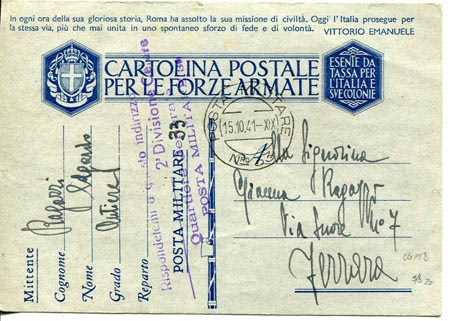 In ogni ora della sua gloriosa storia, Roma ha assolto la sua missione di civiltà. Oggi l'Italia prosegue per
la stessa via, più che mai unita in uno spontaneo sforzo di fede e di volontà. VITTORIO EMANUELE
CARTOLINA POSTALE
PER LE FORZE ARMATE
ESENTE DA
TASSA PER
L'ITALIA E
SVE COLONIE
Mittente
Cognome Ragazzi
Nome Edgardo
Grado
Reparto
Rispondetemi a questo indirizzo
2ª Divisione Celere
Quartiere
POSTA MILITARE
POSTA MILITARE 33
POSTA MILITARE
15.10.41-XIX
Alla Signorina
Gianna Ragazzi
Via N° 7
Ferrara